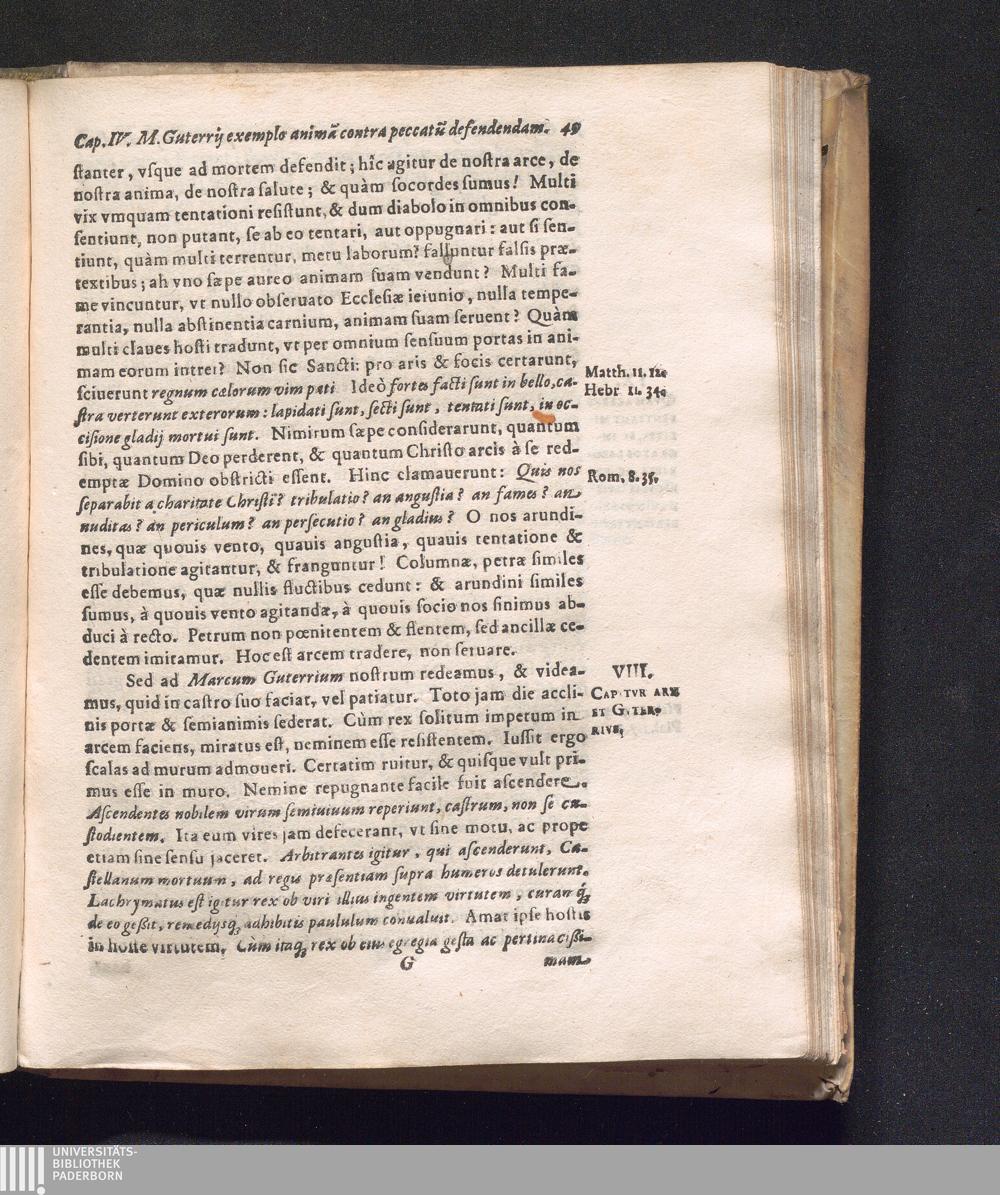 Cap. IV. M. Guterrij exemplo animã contra peccatũ defendendam. 49
ſtanter, vſque ad mortem defendit; hîc agitur de noſtra arce, de
noſtra anima, de noſtra ſalute; & quàm ſocordes ſumus! Multi
vix vmquam tentationi reſiſtunt, & dum diabolo in omnibus con-
ſentiunt, non putant, ſe ab eo tentari, aut oppugnari: aut ſi ſen-
tiunt, quàm multi terrentur, metu laborum? falluntur falſis præ-
textibus; ah vno ſæpe aureo animam ſuam vendunt? Multi fa-
me vincuntur, vt nullo obſeruato Eccleſiæ ieiunio, nulla tempe-
rantia, nulla abſtinentia carnium, animam ſuam ſeruent? Quàm
multi claues hoſti tradunt, vt per omnium ſenſuum portas in ani-
mam eorum intret? Non ſic Sancti: pro aris & focis certarunt,
ſciuerunt regnum cælorum vim pati Ideò fortes facti ſunt in bello, ca-
ſtra verterunt exterorum: lapidati ſunt, ſecti ſunt, tentati ſunt, in oc-
ciſione gladij mortui ſunt. Nimirum ſæpe conſiderarunt, quantum
ſibi, quantum Deo perderent, & quantum Chriſto arcis à ſe red-
emptæ Domino obſtricti eſſent. Hinc clamauerunt: Quis nos
ſeparabit a charitate Chriſti? tribulatio? an anguſtia? an fames? an
nuditas? an periculum? an perſecutio? an gladius? O nos arundi-
nes, quæ quouis vento, quauis anguſtia, quauis tentatione &
tribulatione agitantur, & franguntur! Columnæ, petræ ſimiles
eſſe debemus, quæ nullis fluctibus cedunt: & arundini ſimiles
ſumus, à quouis vento agitandæ, à quouis ſocio nos ſinimus ab-
duci à recto. Petrum non pœnitentem & flentem, ſed ancillæ ce-
dentem imitamur. Hoc eſt arcem tradere, non ſeruare.
Sed ad Marcum Guterrium noſtrum redeamus, & videa-
mus, quid in caſtro ſuo faciat, vel patiatur. Toto jam die accli-
nis portæ & ſemianimis ſederat. Cùm rex ſolitum impetum in
arcem faciens, miratus eſt, neminem eſſe reſiſtentem. Iuſſit ergo
ſcalas ad murum admoueri. Certatim ruitur, & quiſque vult pri-
mus eſſe in muro. Nemine repugnante facile fuit aſcendere.
Aſcendentes nobilem virum ſemiuiuum reperiunt, caſtrum, non ſe cu-
ſtodientem. Ita eum vires jam defecerant, vt ſine motu, ac prope
etiam ſine ſenſu jaceret. Arbitrantes igitur, qui aſcenderunt, Ca-
ſtellanum mortuum, ad regis præſentiam ſupra humeros detulerunt.
Lachrymatus eſt igitur rex ob viri illius ingentem virtutem, curamq́;
de eo geßit, remedijsq; adhibitis paululum conualuit. Amat ipſe hoſtis
in hoſte virtutem. Cùm itaq; rex ob eius egregia geſta ac pertinacißi-
G mam
Matth. 11. 12.
Hebr 11. 34.
Rom. 8. 35.
VIII.
CAPTVR ARX
ET GVTER-
RIVS.
UNIVERSITÄTS-
BIBLIOTHEK
PADERBORN